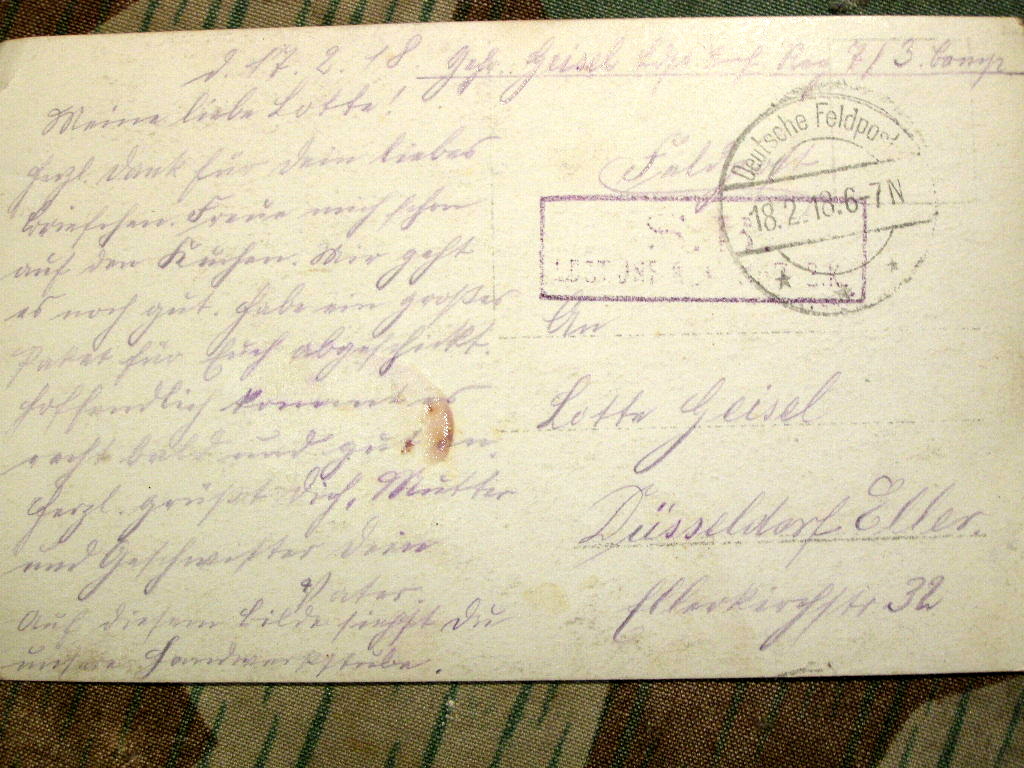 d. 17. 2. 18. Gefr. Geisel Lds. Inf. Reg 7/3. Comp
Meine liebe Lotte!
Herzl. Dank für Dein liebes
Briefchen. Freue mich schon
auf den Kuchen. Mir geht
es noch gut. Habe ein großes
Paket für Euch abgeschickt.
Hoffendlich kommt es
recht bald und gut an.
Herzl. grüßt Dich, Mutter
und Geschwister Dein
Vater.
Auf diesem Bilde siehst Du
unsere Handwerkstube.
Feldpost
Deutsche Feldpost
18.2.18.6-7N
LDST. INF.
An
Lotte Geisel
Düsseldorf Eller.
Ellerkirchstr 32